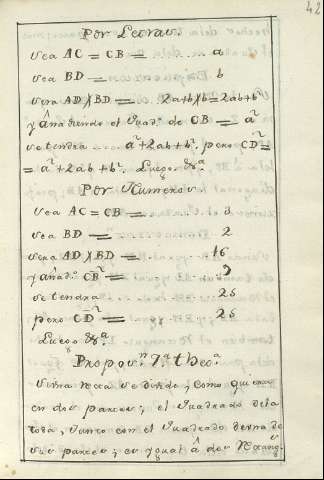 42
Por Letras.
sea AC = CB = a
sea BD = b
sera AD X BD = 2a+b X b = 2ab+b²
y añadiendo el Quad.º de CB = a²
se tendra .... a²+2ab+b². pero CD² =
= a²+2ab+b². Luego &ª.
Por Numeros
sea AC = CB = 3
sea BD = 2
sera AD X BD = 16
y añad.º CB² = 9
se tendra 25
pero CD² = 25
Luego &ª.
Propos.ⁿ 7.ª theo.ª
Si una recta se divide, como quiera
en dos partes; el quadrado de la
toda, junto con el quadrado de una de
sus partes; es ygual â dos Rectang.ˢ